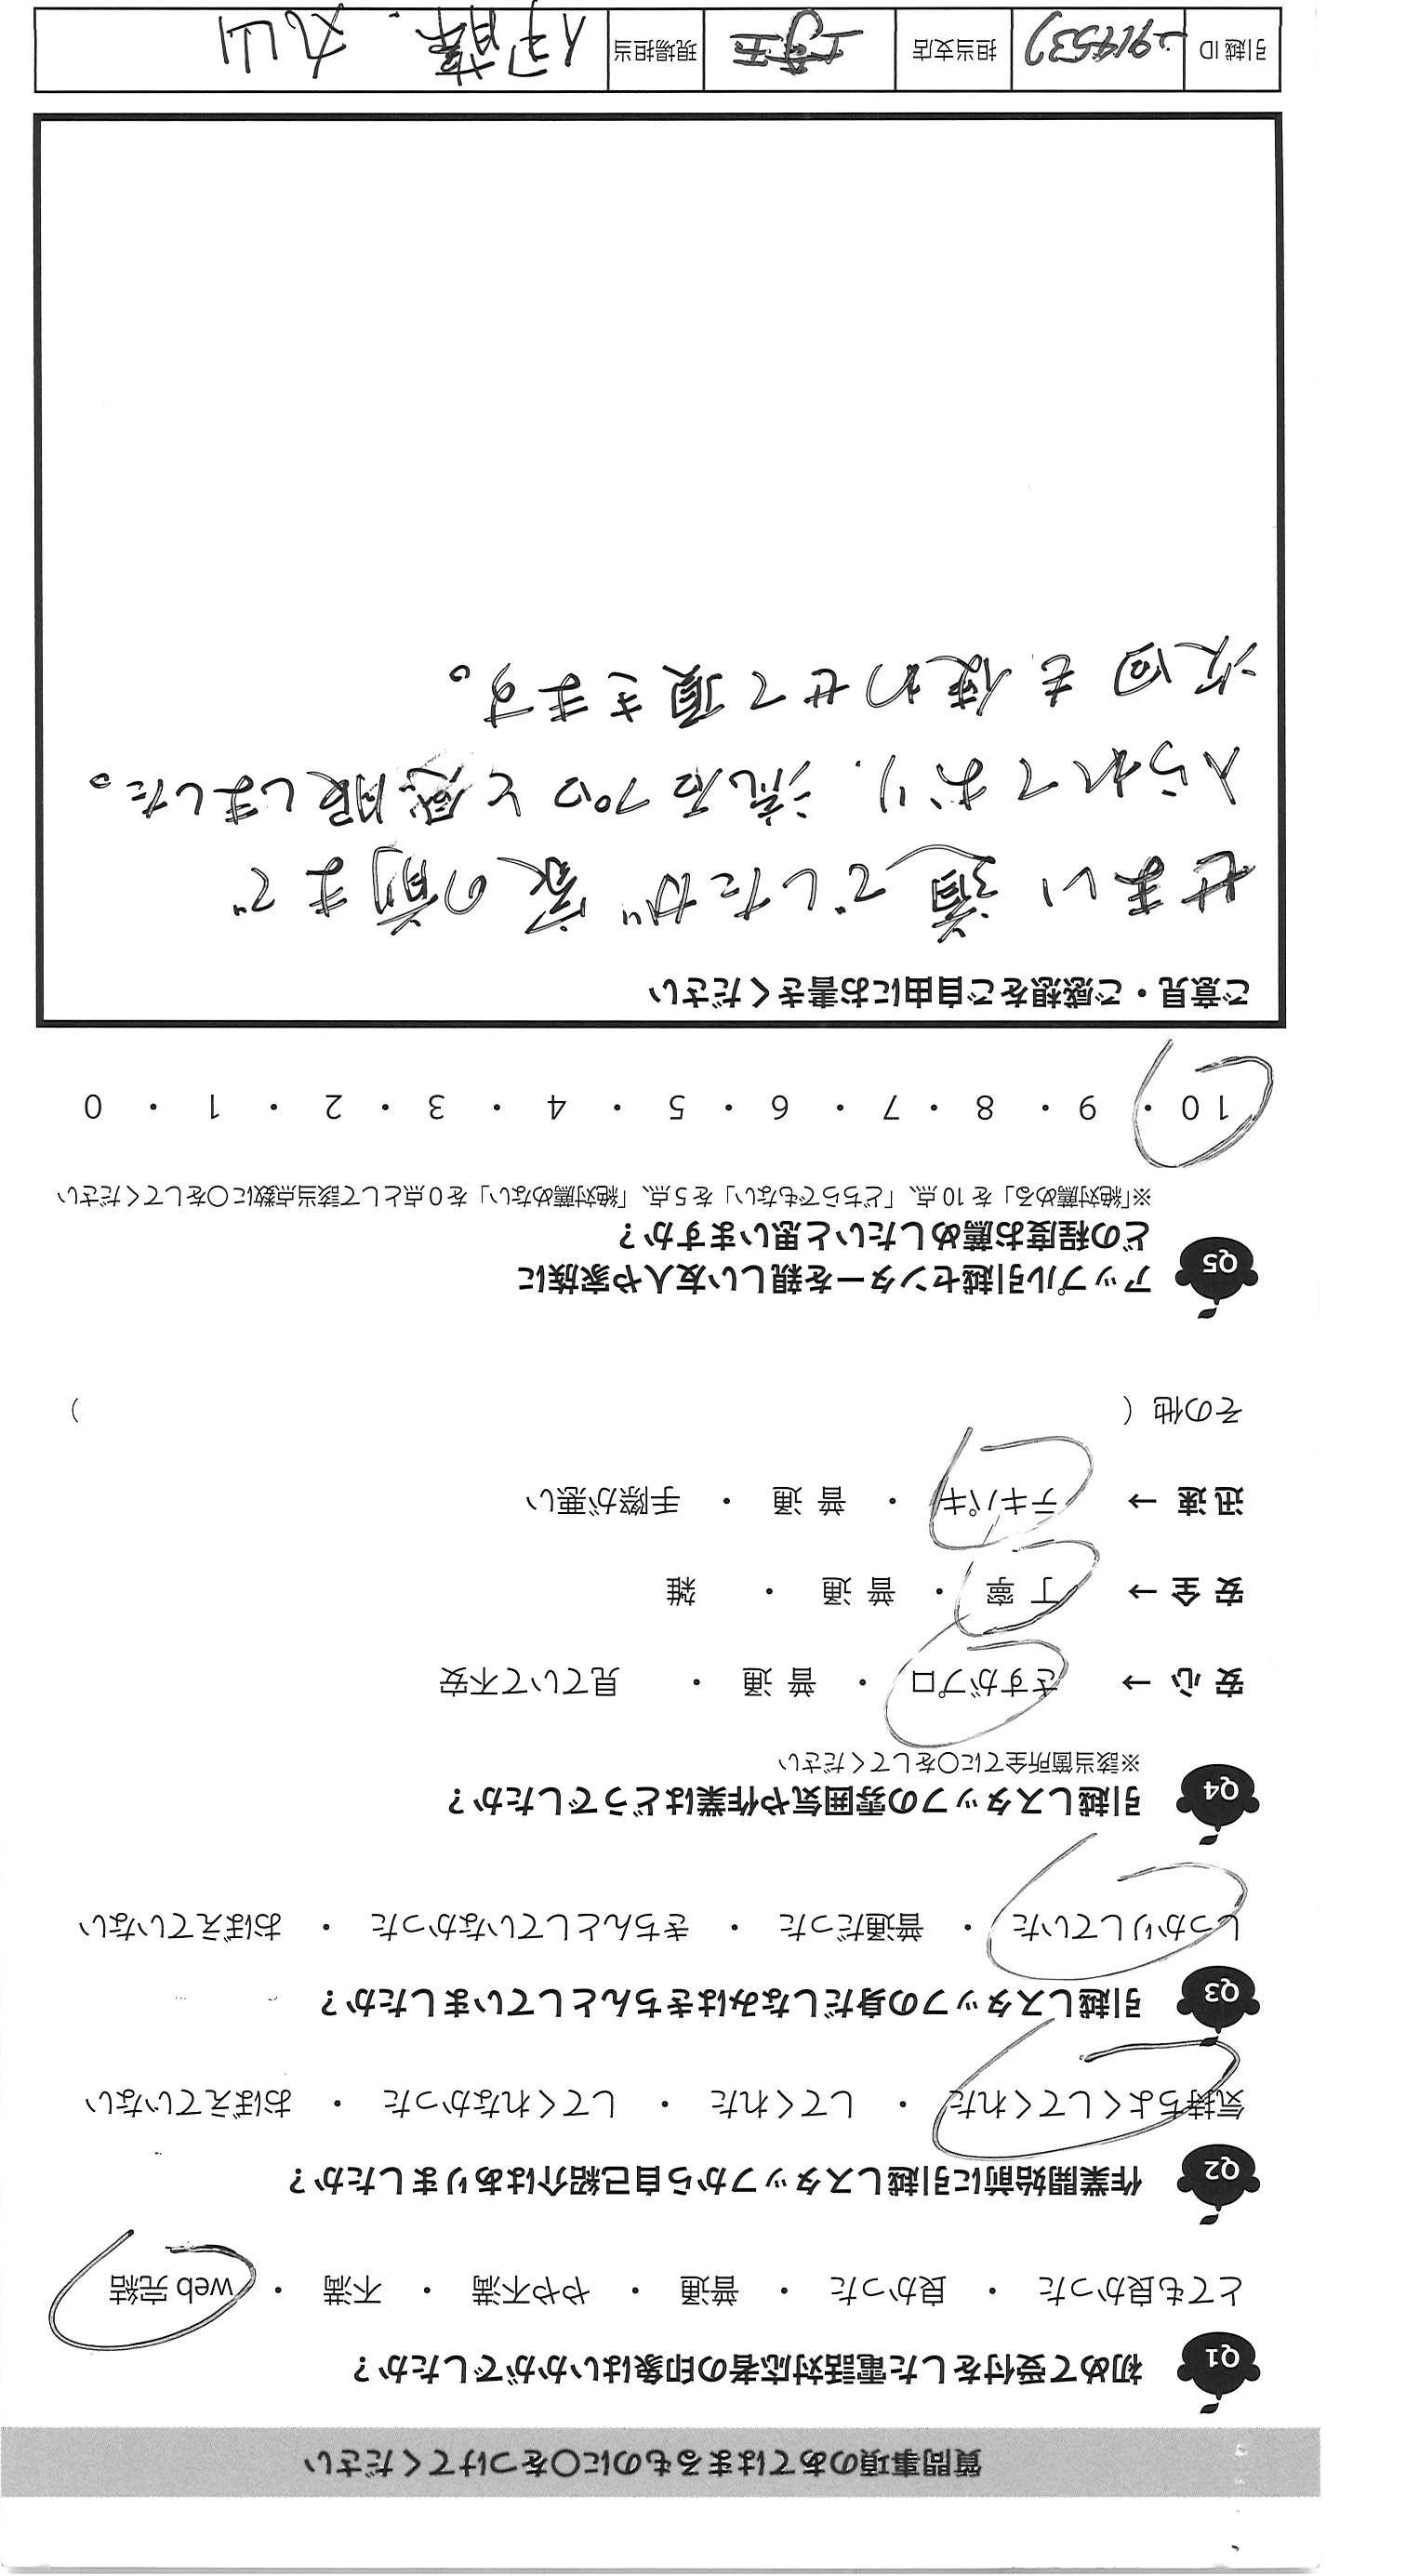 質問事項のあてはまるものに〇をつけてください
Q1 初めて受付をした電話対応者の印象はいかがでしたか？
とても良かった ・ 良かった ・ 普通 ・ やや不満 ・ 不満 ・ web 完結
Q2 作業開始前に引越しスタッフから自己紹介はありましたか？
気持ちよくしてくれた ・ してくれた ・ してくれなかった ・ おぼえていない
Q3 引越しスタッフの身だしなみはきちんとしていましたか？
しっかりしていた ・ 普通だった ・ きちんとしていなかった ・ おぼえていない
Q4 引越しスタッフの雰囲気や作業はどうでしたか？
※該当箇所全てに〇をしてください
安 心 → さすがプロ ・ 普 通 ・ 見ていて不安
安 全 → 丁 寧 ・ 普 通 ・ 雑
迅 速 → テキパキ ・ 普 通 ・ 手際が悪い
その他（ ）
Q5 アップル引越センターを親しい友人や家族に
どの程度お薦めしたいと思いますか？
※「絶対薦める」を 10 点、「どちらでもない」を 5 点、「絶対薦めない」を 0 点として該当点数に〇をしてください
10 ・ 9 ・ 8 ・ 7 ・ 6 ・ 5 ・ 4 ・ 3 ・ 2 ・ 1 ・ 0
ご意見・ご感想をご自由にお書きください
せまい道でしたが家の前まで
入られており、流石プロと感服しました。
次回も使わせて頂きます。
引越 ID 担当支店 埼玉 現場担当 伊藤、丸山